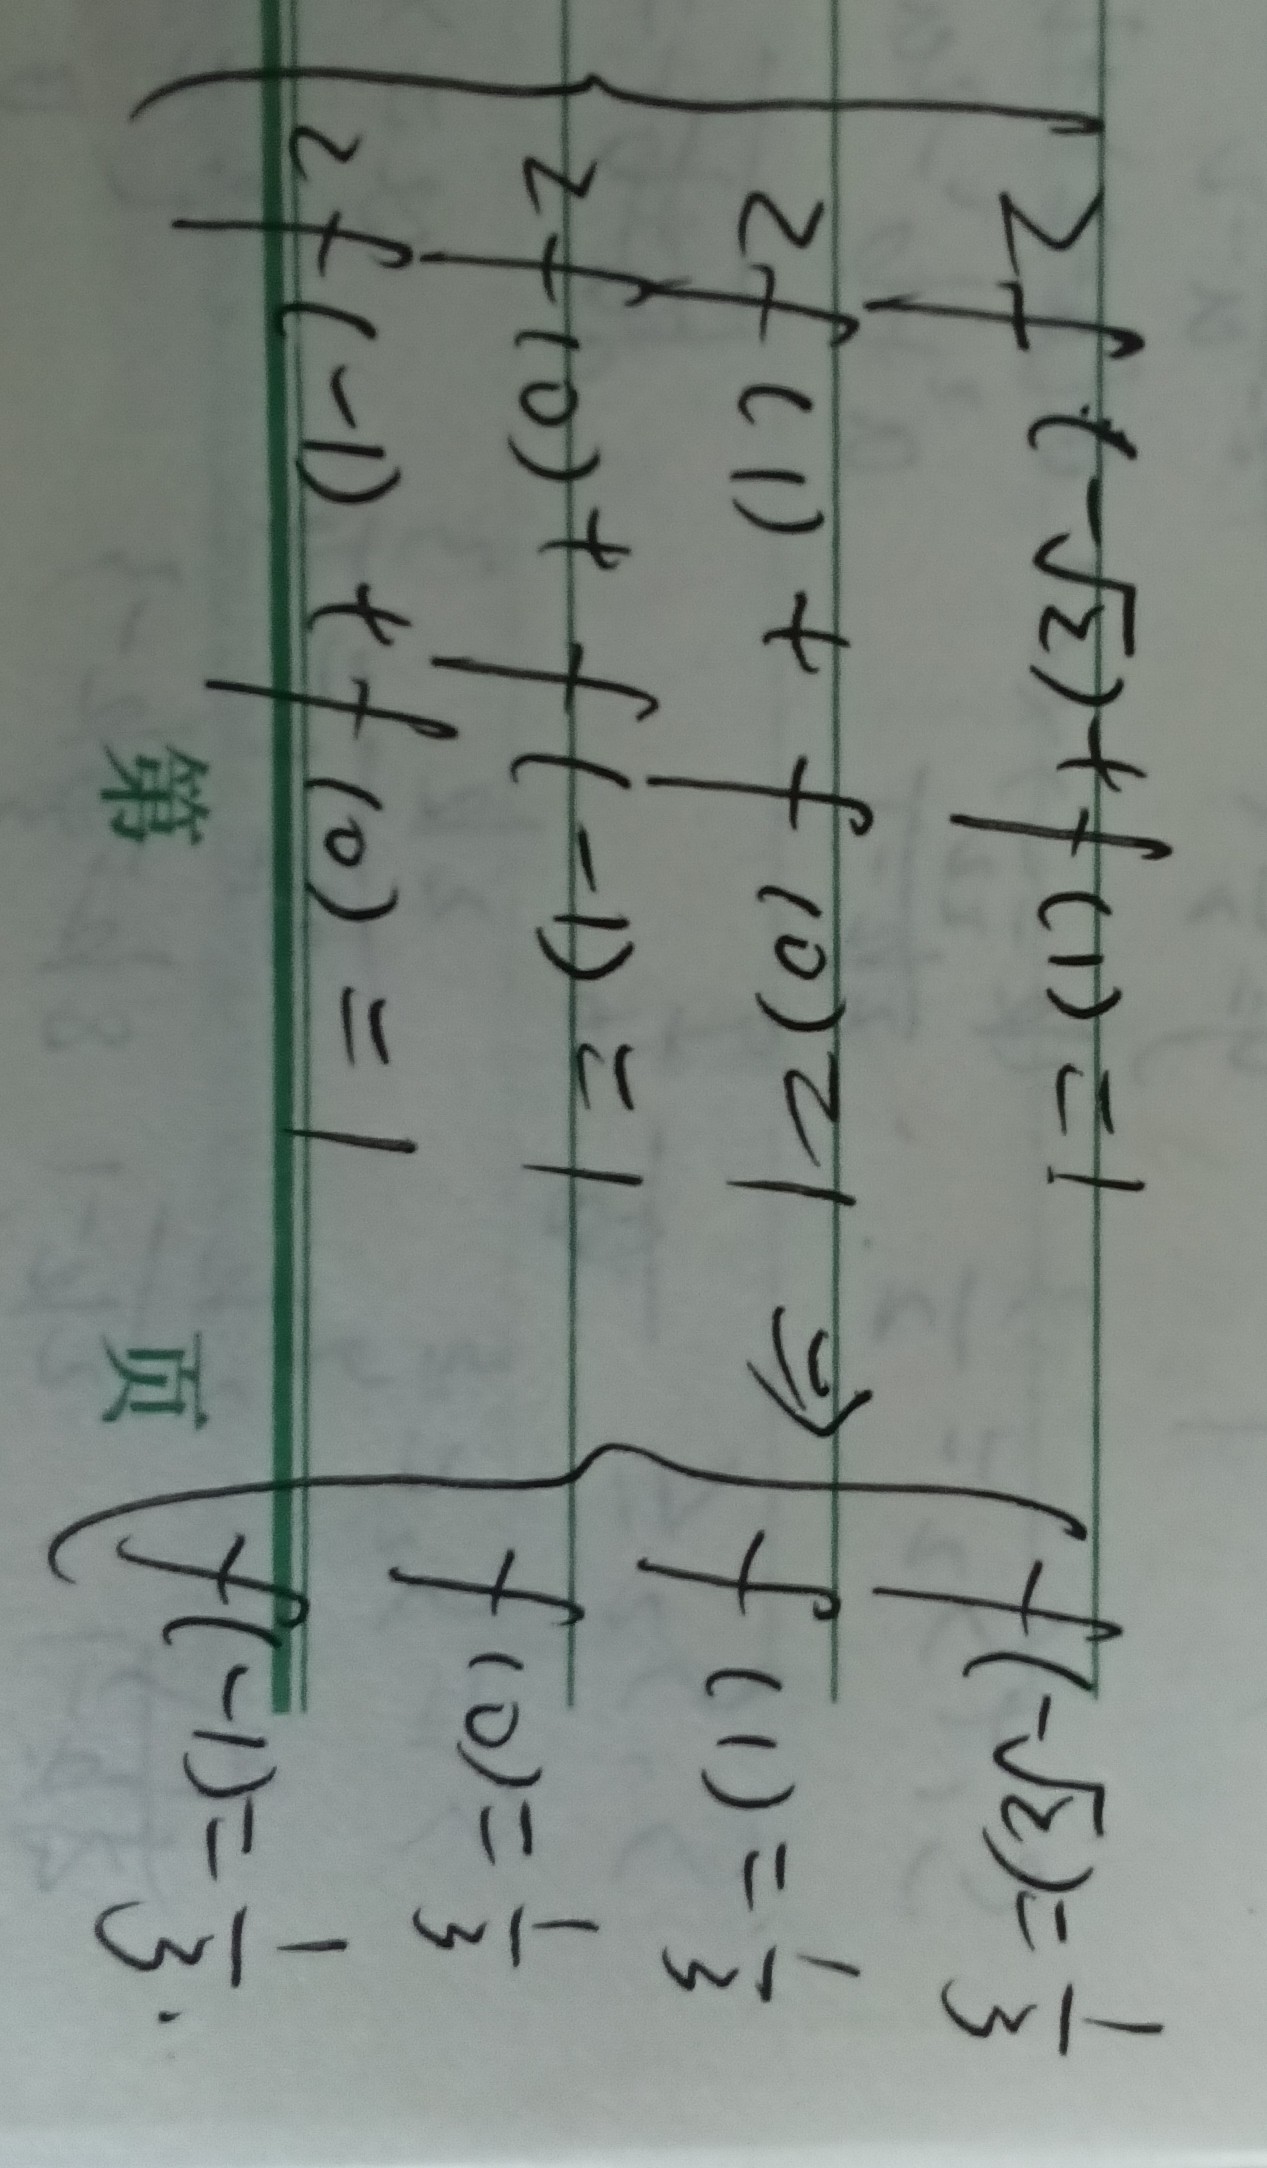 2f(-√3)+f(1)=1
2f(1)+f(0)=1
2f(0)+f(-1)=1
2f(-1)+f(0)=1
⇒
f(-√3)=1/3
f(1)=1/3
f(0)=1/3
f(-1)=1/3.
第 页